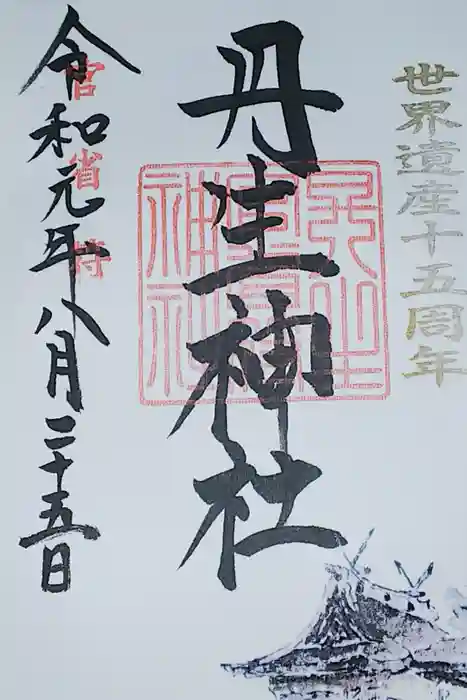 世界遺産十五周年
丹生神社
官省符
令和元年八月二十五日